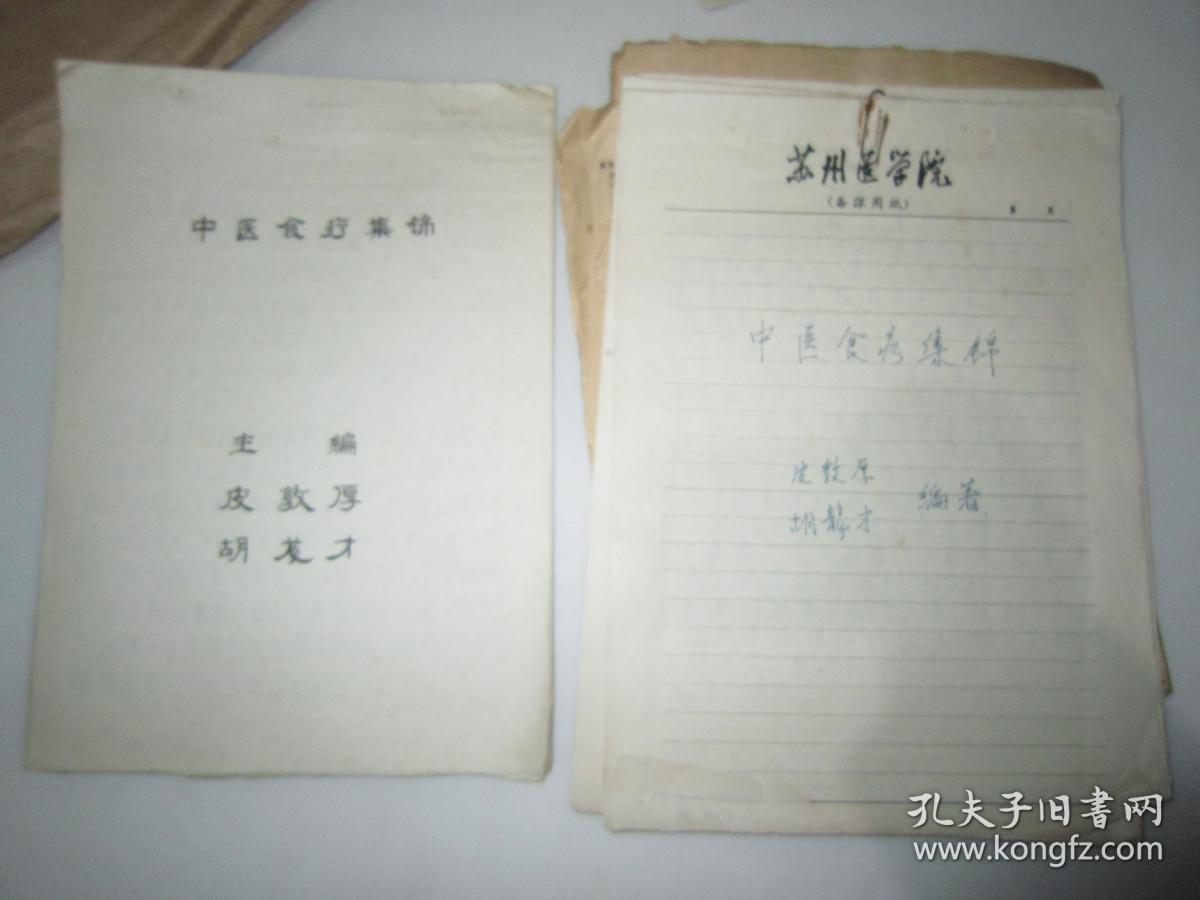 中医食疗集锦
主编
皮敦厚
胡龙才
苏州医学院
(备课用纸)
第 页
中医食疗集锦
皮敦厚
胡龙才
编著
孔夫子旧书网
www.kongfz.com